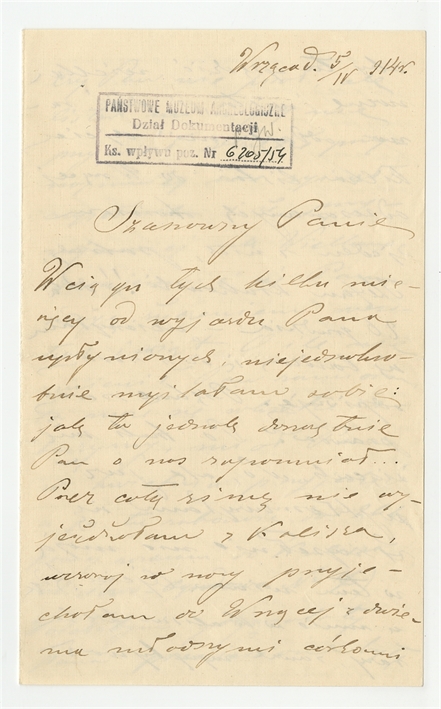 Wrząca d. 5/IV 914r.
PAŃSTWOWE MUZEUM ARCHEOLOGICZNE
Dział Dokumentacji
Ks. wpływu poz. Nr 6205/54
Szanowny Panie
W ciągu tych kilku mie-
sięcy od wyjazdu Pana
upłynionych, niejednokro-
tnie myślałam sobie:
jak to jednak doszczętnie
Pan o nas zapomniał...
Przez całą zimę nie wy-
jeżdżałam z Kalisza,
wczoraj w nocy przyje-
chałam do Wrzącej z dwie-
ma młodszymi córkami